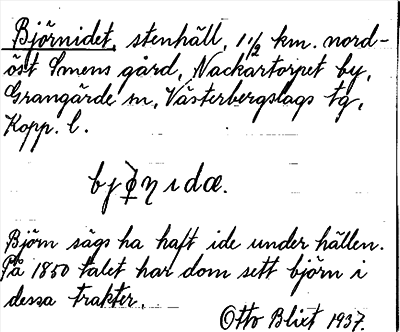 Björnidet, stenhäll, 1 1/2 km. nord-
öst Smens gård, Nackartorpet by,
Grangärde sn, Västerbergslags tg,
Kopp. l.
Björn sägs ha haft ide under hällen.
På 1850 talet har dom sett björn i
dessa trakter.
Otto Blixt 1937.